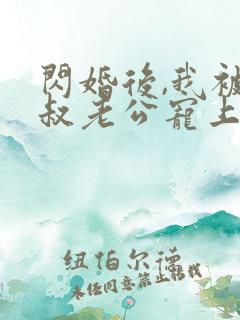 閃婚後,我被
叔老公寵上
纽伯尔德
未经同意禁止转载